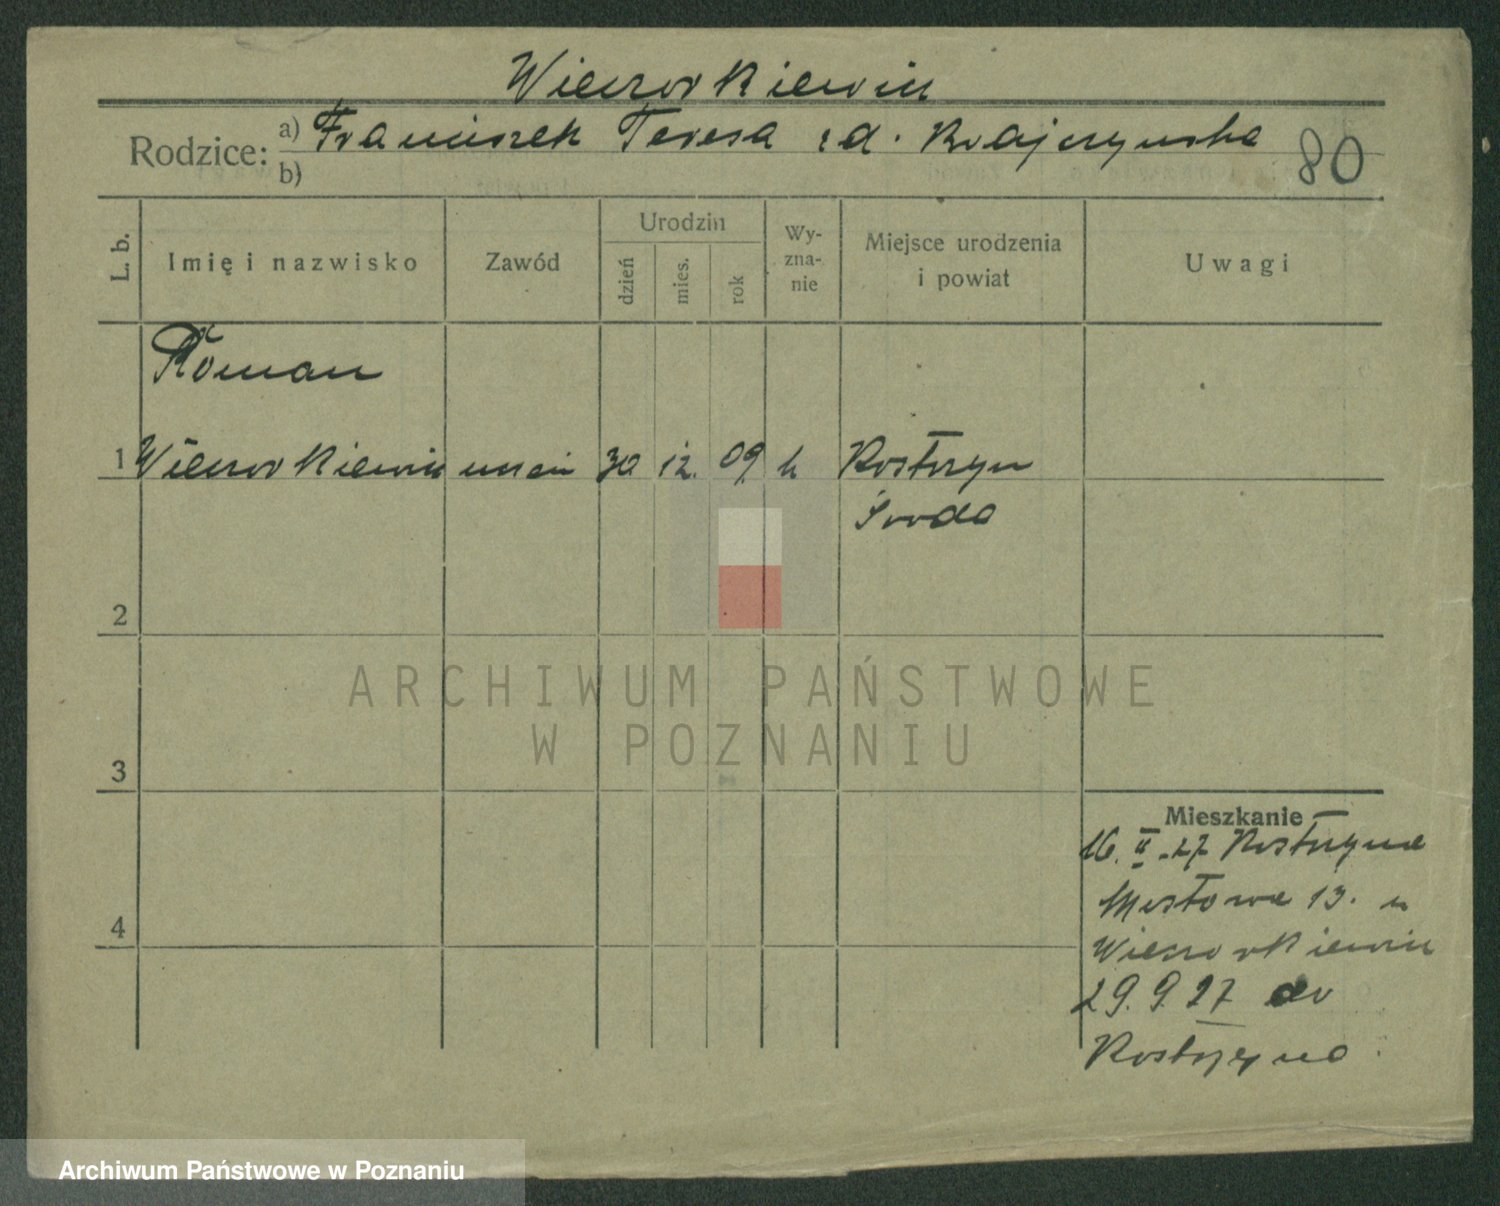 Wieczorkiewicz
Rodzice: a) Franciszek Teresa zd. Krajczynska
b)
80
L. b.
Imię i nazwisko
Zawód
Urodzin
dzień
mies.
rok
Wy-
zna-
nie
Miejsce urodzenia
i powiat
Uwagi
Roman
1 Wieczorkiewicz uczeń 30 12. 09. k Kostrzyn
Środa
2
3
4
Mieszkanie
16. II. 27 Kostrzyna
Mostowa 13. u
Wieczorkiewicz
29. 9. 27 do
Kostrzyna
ARCHIWUM PAŃSTWOWE
W POZNANIU
Archiwum Państwowe w Poznaniu